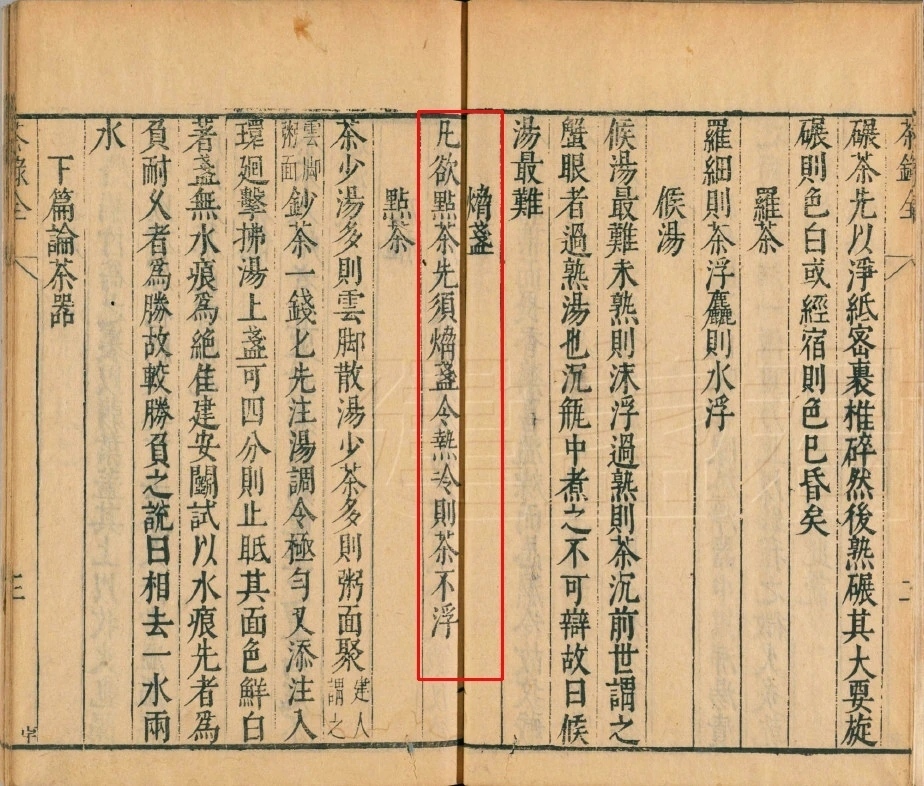 茶錄全
二
碾茶先以淨紙密裹椎碎然後熟碾其大要旋
碾則色白或經宿則色已昏矣
羅茶
羅細則茶浮麤則水浮
候湯
候湯最難未熟則沫浮過熟則茶沉前世謂之
蟹眼者過熟湯也沉瓶中煮之不可辯故曰候
湯最難
熁盞
凡欲點茶先須熁盞令熱冷則茶不浮
點茶
茶少湯多則雲脚散湯少茶多則粥面聚建人謂之
雲脚粥面鈔茶一錢匕先注湯調令極勻又添注入
環廻擊拂湯上盞可四分則止眡其面色鮮白
著盞無水痕為絶佳建安鬬試以水痕先者為
負耐乆者為勝故較勝負之說曰相去一水兩
水
下篇論茶器
茶錄全
三